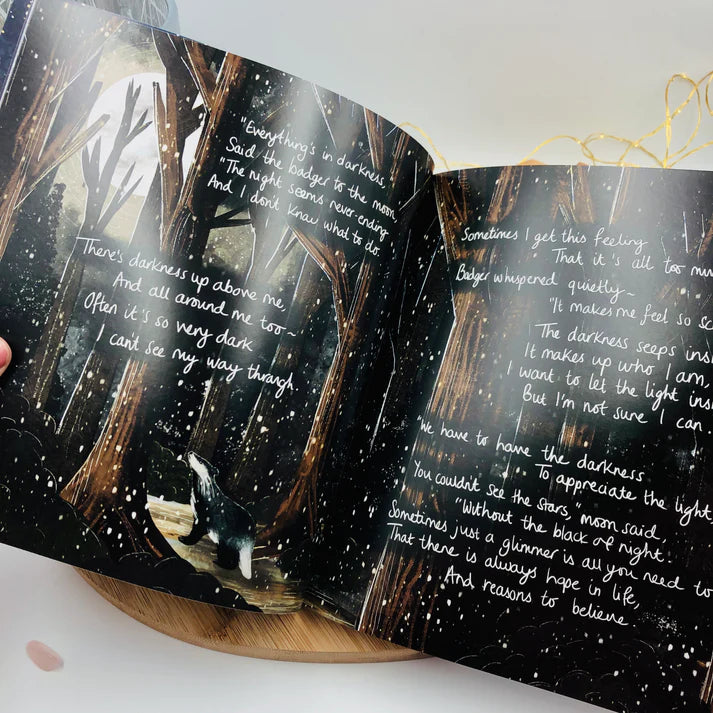 "Everything's in darkness,
Said the badger to the moon,
"The night seems never-ending
And I don't know what to do.
There's darkness up above me,
And all around me too~
Often it's so very dark
I can't see my way through.
Sometimes I get this feeling
That it's all too
Badger whispered quietly~
"It makes me feel so
The darkness seeps
It makes up who I am,
I want to let the light
But I'm not sure I can.
"We have to have the darkness
To appreciate the light,
You couldn't see the stars," moon said,
"Without the black of night.
Sometimes just a glimmer is all you need to
That there is always hope in life,
And reasons to believe